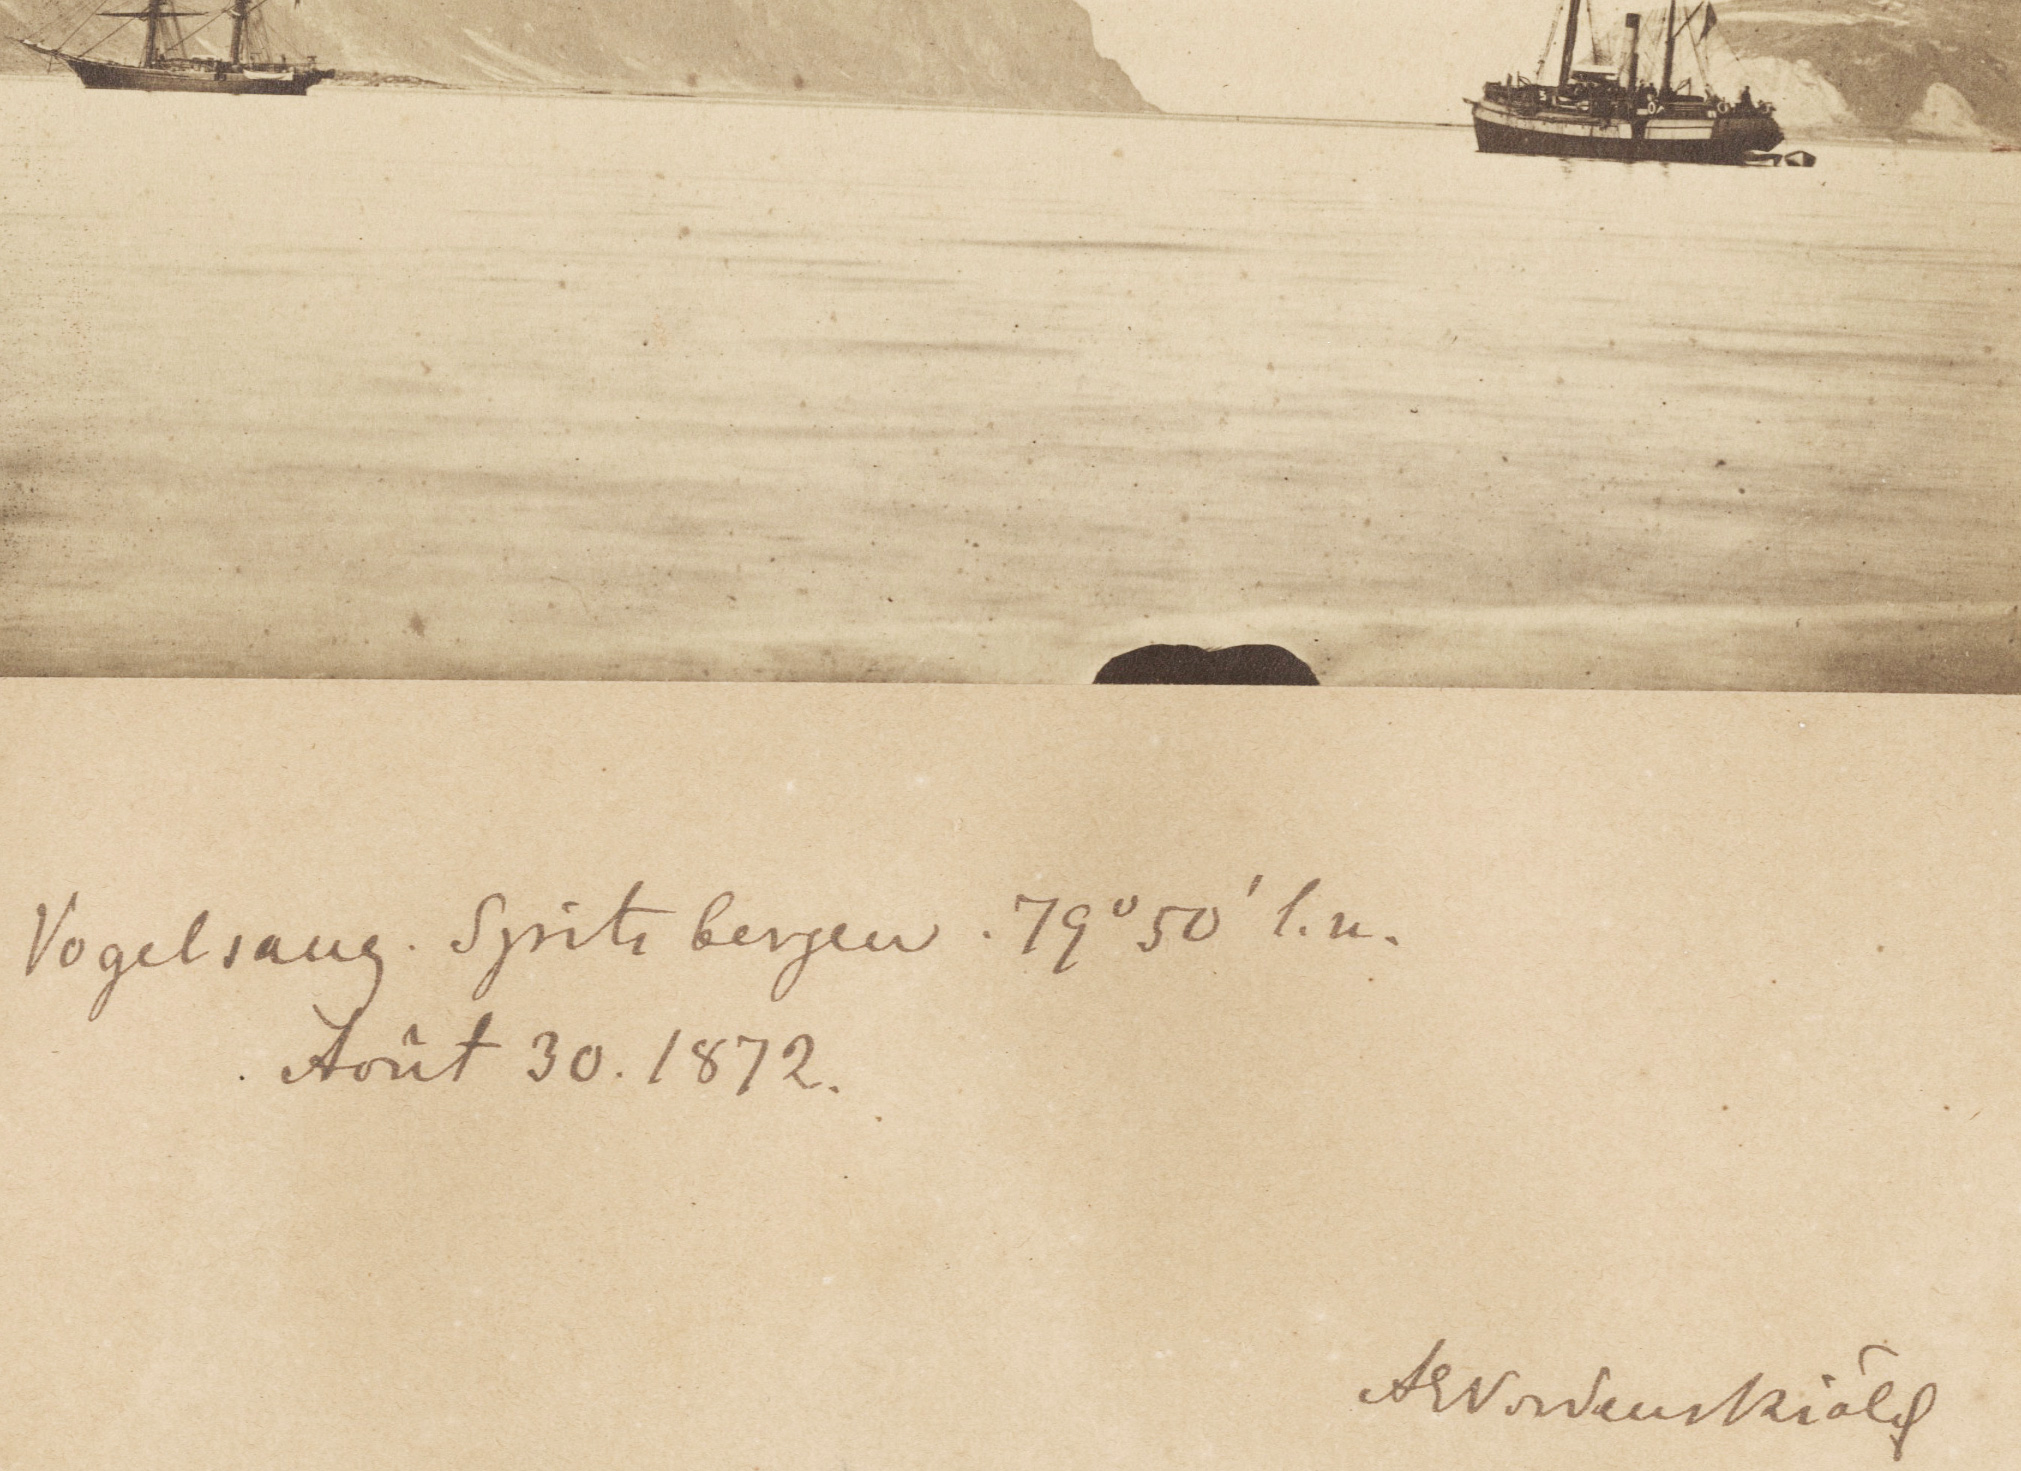 Vogelsang. Spitsbergen. 79°50' l.n.
Août 30. 1872.
AENordenskiöld